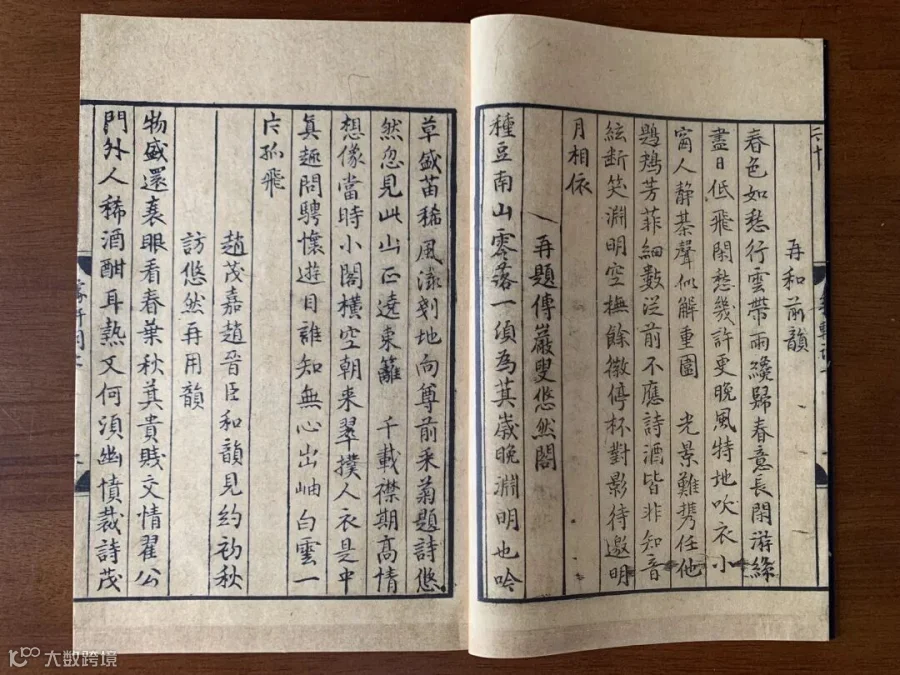 二十
再和前韻
春色如愁行雲帶雨纔歸春意長閑游絲
盡日低飛閑愁幾許更晚風特地吹衣小
窗人靜棊聲似解重圍　光景難携任他
鶗鴂芳菲細數從前不應詩酒皆非知音
絃斷笑淵明空撫餘徽停杯對影待邀明
月相依
再題傅巖叟悠然閣
種豆南山零落一頃為萁歲晚淵明也吟
草盛苗稀風流剗地向尊前采菊題詩悠
然忽見此山正遶東籬　千載襟期高情
想像當時小閣橫空朝來翠撲人衣是中
真趣問騁懷遊目誰知無心出岫白雲一
片孤飛
趙茂嘉趙晉臣和韻見約初秋
訪悠然再用韻
物盛還衰眼看春葉秋萁貴賤交情翟公
門外人稀酒酣耳熱又何須幽憤裁詩茂
大数跨境